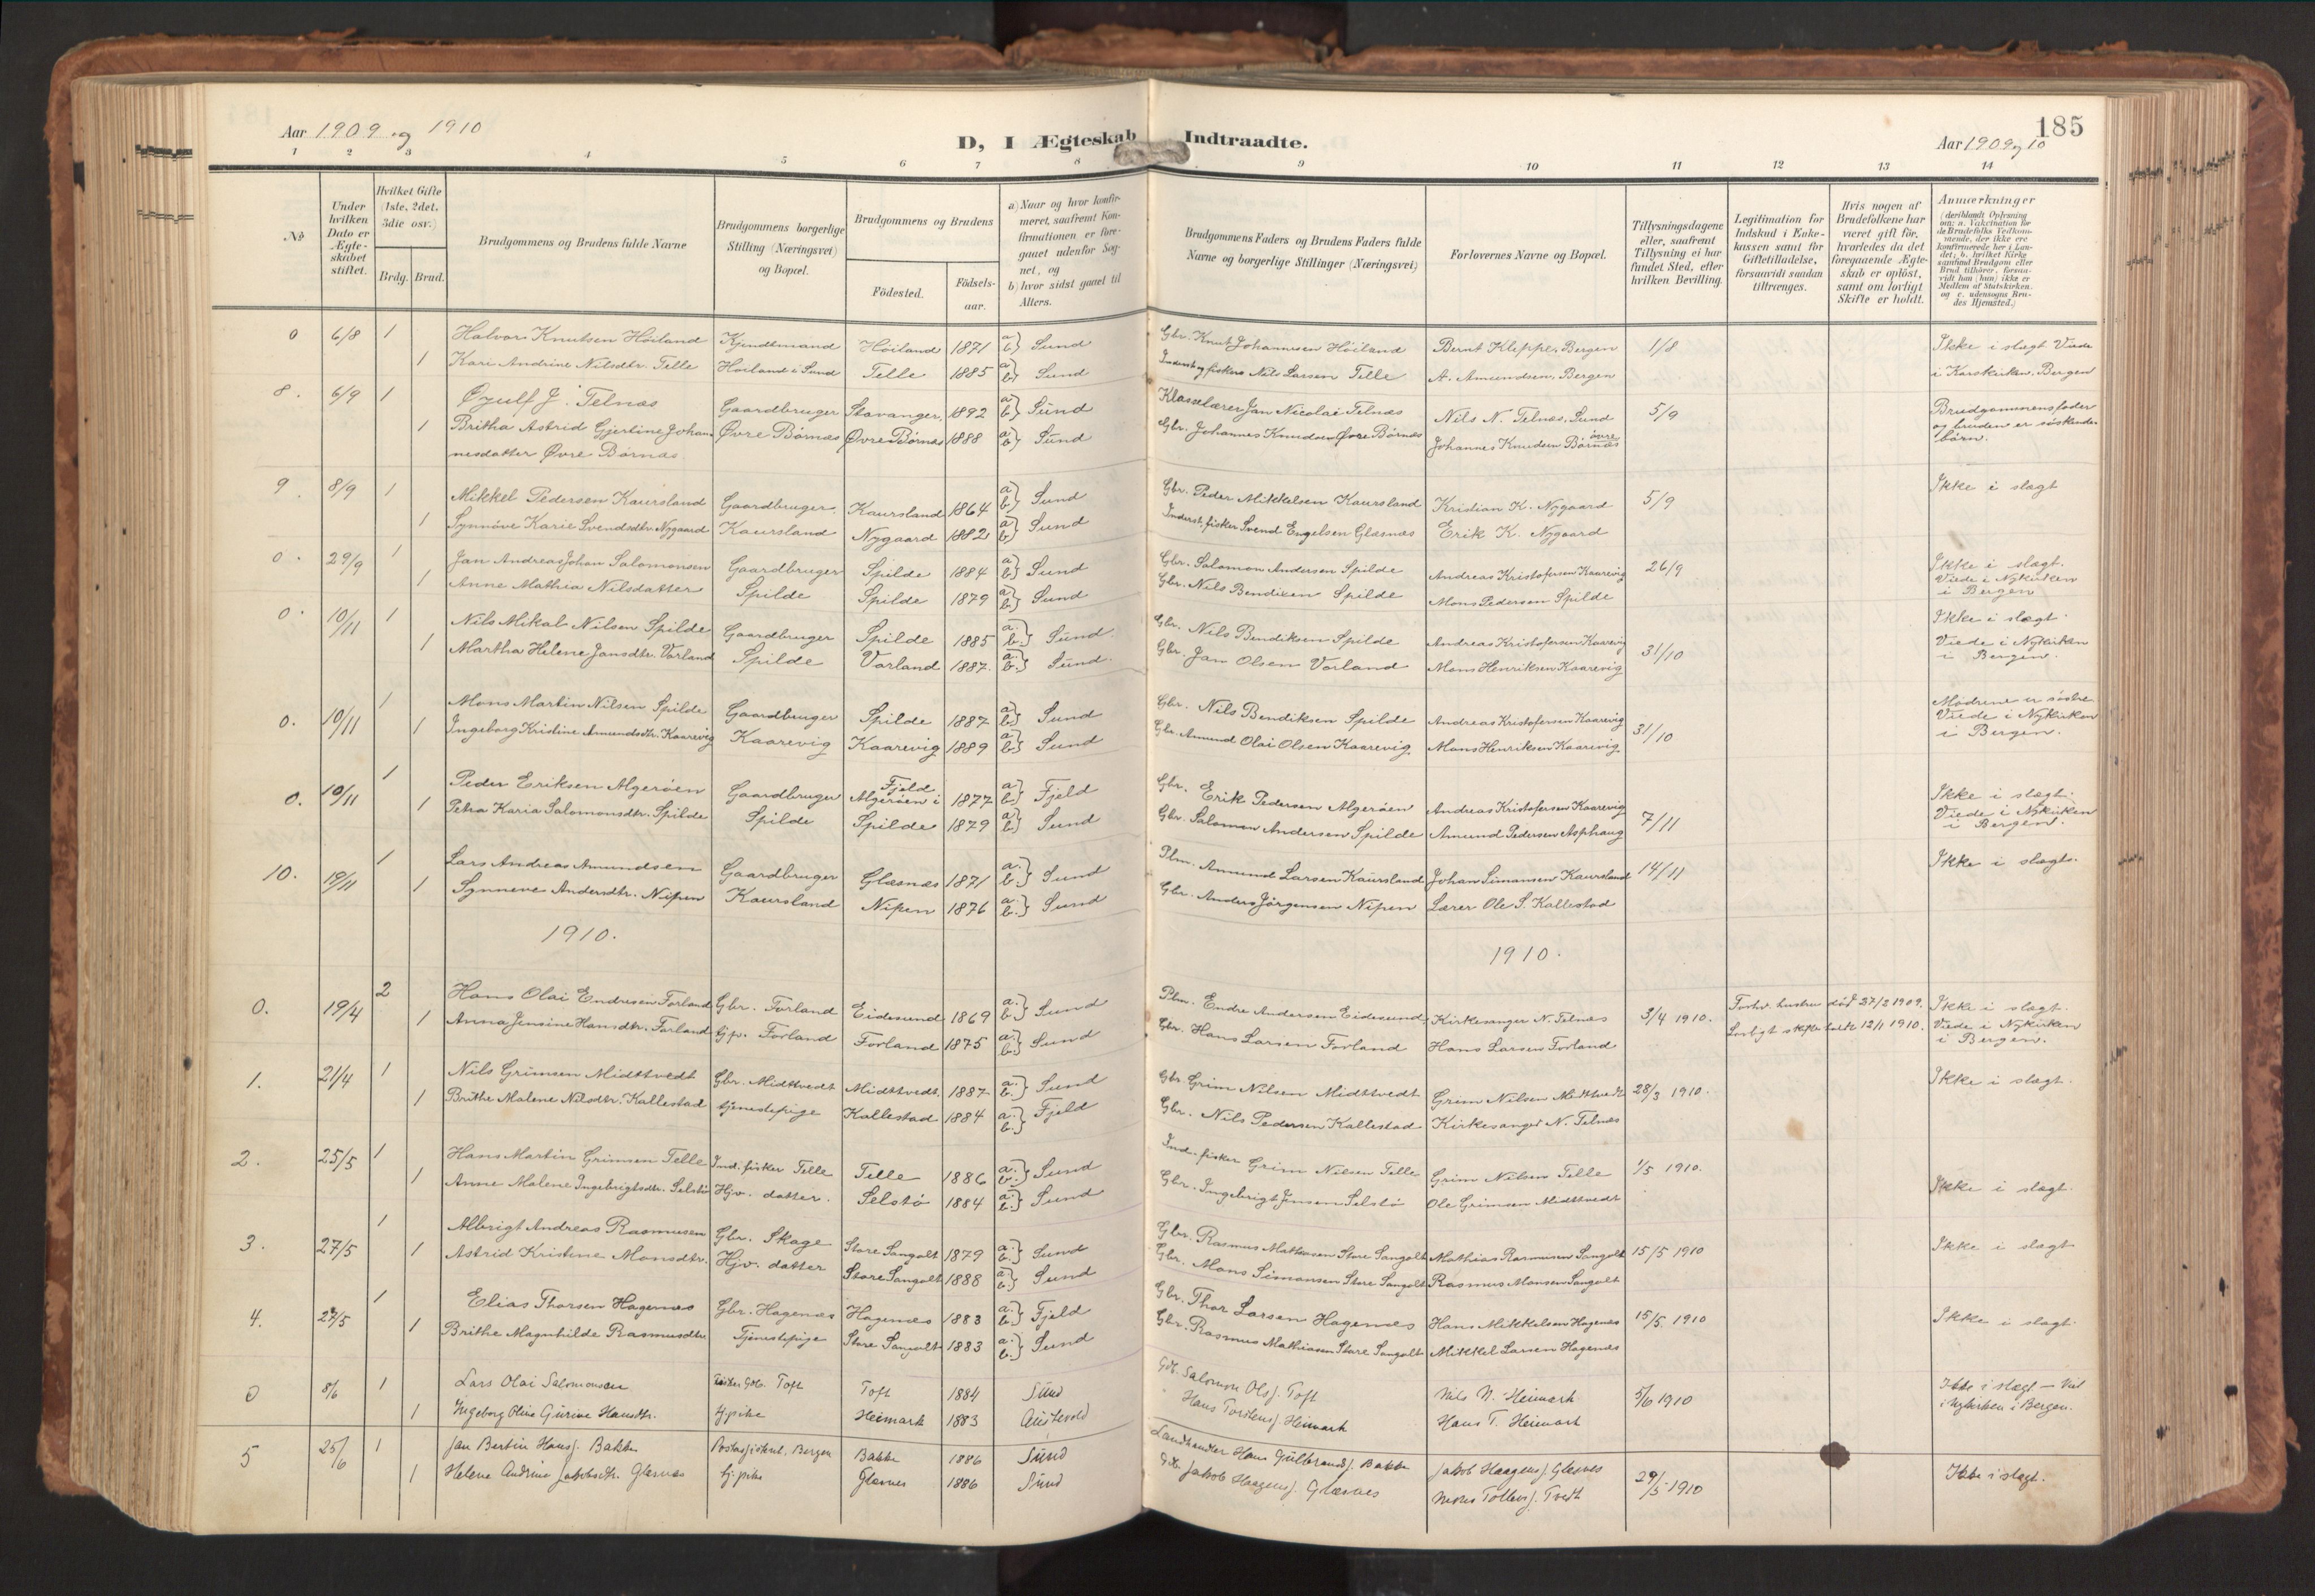 Aar 1909 og 1910
D, I Ægteskab Indtraadte.
Aar 1909 og 10
185
1 2 3 4 5 6 7 8 9 10 11 12 13 14
No
Under hvilken Dato er Ægteskabet stiftet.
Hvilket Gifte (1ste, 2det, 3die osv.)
Brdg. Brud.
Brudgommens og Brudens fulde Navne
Brudgommens borgerlige Stilling (Næringsvei) og Bopæl.
Brudgommens og Brudens
Födested.
Födselsaar.
a) Naar og hvor konfirmeret, saafremt Konfirmationen er foregaaet udenfor Sognet, og
b) hvor sidst gaaet til Alters.
Brudgommens Faders og Brudens Faders fulde Navne og borgerlige Stillinger (Næringsvei)
Forlovernes Navne og Bopæl.
Tillysningsdagene eller, saafremt Tillysning ei har fundet Sted, efter hvilken Bevilling.
Legitimation for Indskud i Enkekassen samt for Giftetilladelse, forsaavidt saadan tiltrænges.
Hvis nogen af Brudefolkene har været gift för, hvorledes da det foregaaende Ægteskab er oplöst, samt om lovligt Skifte er holdt.
Anmærkninger
(deriblandt Oplysning om: a. Vakcination for de Brudefolks Vedkommende, der ikke ere konfirmerede her i Landet; b. hvilket Kirkesamfund Brudgom eller Brud tilhörer, forsaavidt han (hun) ikke er Medlem af Statskirken. og c. udensogns Brudes Hjemsted.)
0 6/8 1 Halvor Knutsen Höiland Kjendtmand Höiland 1871 a) b) Sund Gbr. Knut Johannesen Höiland Bernt Kleppe, Bergen 1/8 Ikke i slægt Viede
1 Kari Andrine Nilsdtr. Telle Höiland i Sund Telle 1885 a) b) Sund fisker Nils Larsen Telle A. Amundsen, Bergen i Korskirken, Bergen
8. 6/9 1 Øjulf J. Telnæs Gaardbruger Stavanger 1892 a) b) Sund Klasselærer Jan Nicolai Telnæs Nils N. Telnæs, Sund 5/9 Brudgommens fader
1 Britha Astrid Gjertine Johan- Øvre Børnæs Øvre Børnæs 1888 a) b) Sund Gbr. Johannes Knudsen Øvre Børnæs Johannes Knudsen Børnæs övre og bruden er søskende
nesdatter Øvre Børnæs børn.
9. 8/9 1 Mikkel Pedersen Kaursland Gaardbruger Kaursland 1864 a) b) Sund Gbr. Peder Mikkelsen Kaursland Kristian K. Nygaard 5/9 Ikke i slægt
1 Synnöve Karie Svendsdtr. Nygaard Kaursland Nygaard 1882 a) b) Sund Inderst, fisker Svend Engelsen Glæsnæs Erik K. Nygaard
0. 29/9 1 Jan Andreas Johan Salomonsen Gaardbruger Spilde 1884 a) b) Sund Gbr. Salomon Andersen Spilde Andreas Kristofersen Kaarevig 26/9 Ikke i slægt.
1 Anne Mathia Nilsdatter Spilde Spilde 1879 a) b) Sund Gbr. Nils Bendixen Spilde Mons Pedersen Spilde Viede i Nykirken i Bergen
0. 10/11 1 Nils Mikal Nilsen Spilde Gaardbruger Spilde 1885 a. b.) Sund. Gbr. Nils Bendiksen Spilde Andreas Kristofersen Kaarevig 31/10 Ikke i slægt.
1 Martha Helene Jansdtr. Vorland Spilde Vorland 1887. a. b.) Sund. Gbr. Jan Olsen Vorland Mons Henriksen Kaarevig Viede i Nykirken i Bergen.
0. 10/11 1 Mons Martin Nilsen Spilde Gaardbruger Spilde 1887 a) b) Sund Gbr. Nils Bendiksen Spilde Andreas Kristofersen Kaarevig 31/10 Mødrene er søstre
1 Ingeborg Kristine Amundsdtr. Kaarevig Kaarevig Kaarevig 1889 a) b) Sund Gbr. Amund Olai Olsen Kaarevig Mons Henriksen Kaarevig Viede i Nykirken i Bergen.
0. 10/11 1 Peder Eriksen Algeröen Gaardbruger Algeröen i Fjeld 1877 a) b) Fjeld Gbr. Erik Pedersen Algeröen Andreas Kristofersen Kaarevig 7/11 Ikke i slægt.
1 Petra Karia Salomonsdtr. Spilde Spilde Spilde 1879 a) b) Sund Gbr. Salomon Andersen Spilde Amund Pedersen Asphaug Viede i Nykirken i Bergen.
10. 19/11 1 Lars Andreas Amundsen Gaardbruger Glæsnæs 1871 a. b.) Sund Plm. Amund Larsen Kaursland Johan Simonsen Kaursland 14/11 Ikke i slægt.
1 Synneve Andersdtr. Nipen Kaursland Nipen 1876 a. b.) Sund Gbr. Anders Jörgensen Nipen Lærer Ole S. Kallestad
1910. 1910.
0. 19/4 2 Hans Olai Endresen Forland Gbr. Forland Eidesund 1869 a. b.) Sund Plm. Endre Andersen Eidesund Kirkesanger N. Telnæs 3/4 1910. Forhv. hustru död 27/2 1909. Ikke i slægt.
1 Anna Jensine Hansdtr. Forland tjp. Forland Forland 1875 a. b.) Sund Gbr. Hans Larsen Forland Hans Larsen Forland Lovligt skifte holdt 12/1 1910. Viede i Nykirken i Bergen.
1. 21/4 1 Nils Grimsen Midttvedt Gbr. Midttvedt Midttvedt 1887 a. b.) Sund Gbr. Grim Nilsen Midttvedt Grim Nilsen Midttvedt 28/3 1910. Ikke i slægt.
1 Brithe Malene Nilsdtr. Kallestad tjenestepige Kallestad 1884 a. b.) Fjeld Gbr. Nils Pedersen Kallestad Kirkesanger N. Telnæs
2. 25/5 1 Hans Martin Grimsen Telle Ind. fisker Telle Telle 1886 a. b.) Sund Ind. fisker Grim Nilsen Telle Grim Nilsen Telle 1/5 1910. Ikke i slægt.
1 Anne Malene Ingebrigtsdtr. Selstö Hjv. datter. Selstö 1884 a. b.) Sund Gbr. Ingebrigt Jensen Selstö Ole Grimsen Midttvedt
3. 27/5 1 Albrigt Andreas Rasmusen Gbr. Skage Store Sangolt 1879 a. b.) Sund Gbr. Rasmus Mathiasen Store Sangolt Mathias Rasmusen Sangolt 15/5 1910 Ikke i slægt
1 Astrid Kristine Monsdtr. Hjv. datter Store Sangolt 1888 a. b.) Sund Gbr. Mons Simonsen Store Sangolt Rasmus Monsen Sangolt
4. 27/5 1 Elias Thorsen Hagenæs Gbr. Hagenæs Hagenæs 1883 a. b.) Fjeld Gbr. Thor Larsen Hagenæs Hans Mikkelsen Hagenæs 15/5. 1910 Ikke i slægt.
1 Brithe Magnhilde Rasmusdtr Tjenestepige Store Sangolt 1883 a. b.) Sund Gbr. Rasmus Mathiasen Store Sangolt Mikkel Larsen Hagenæs
0 8/6 1 Lars Olai Salomonsen Fisker Gdb. Toft Toft 1884 Sund Gdb. Salomon Olsj. Toft Nils N. Heimark 5/6 1910 Ikke i slægt — Viet
1 Ingeborg Oline Gurine Hansdtr. tj.pike Heimark 1883 Austevold Hans Torstensj. Heimark Hans T. Heimark i Nykirken i Bergen.
5 25/6 1 Jan Bertin Hansj. Bakke Bergen Bakke 1886 Sund Landhandler Hans Gulbrandsj. Bakke Jakob Haagensj. Glesnes 29/5 1910 Ikke i slægt.
1 Helene Andrine Jakobsdtr. Glesnæs tj.pike Glesnes 1886 Sund Gdb. Jakob Haagensj. Glesnes Tollevsj. Tvedt